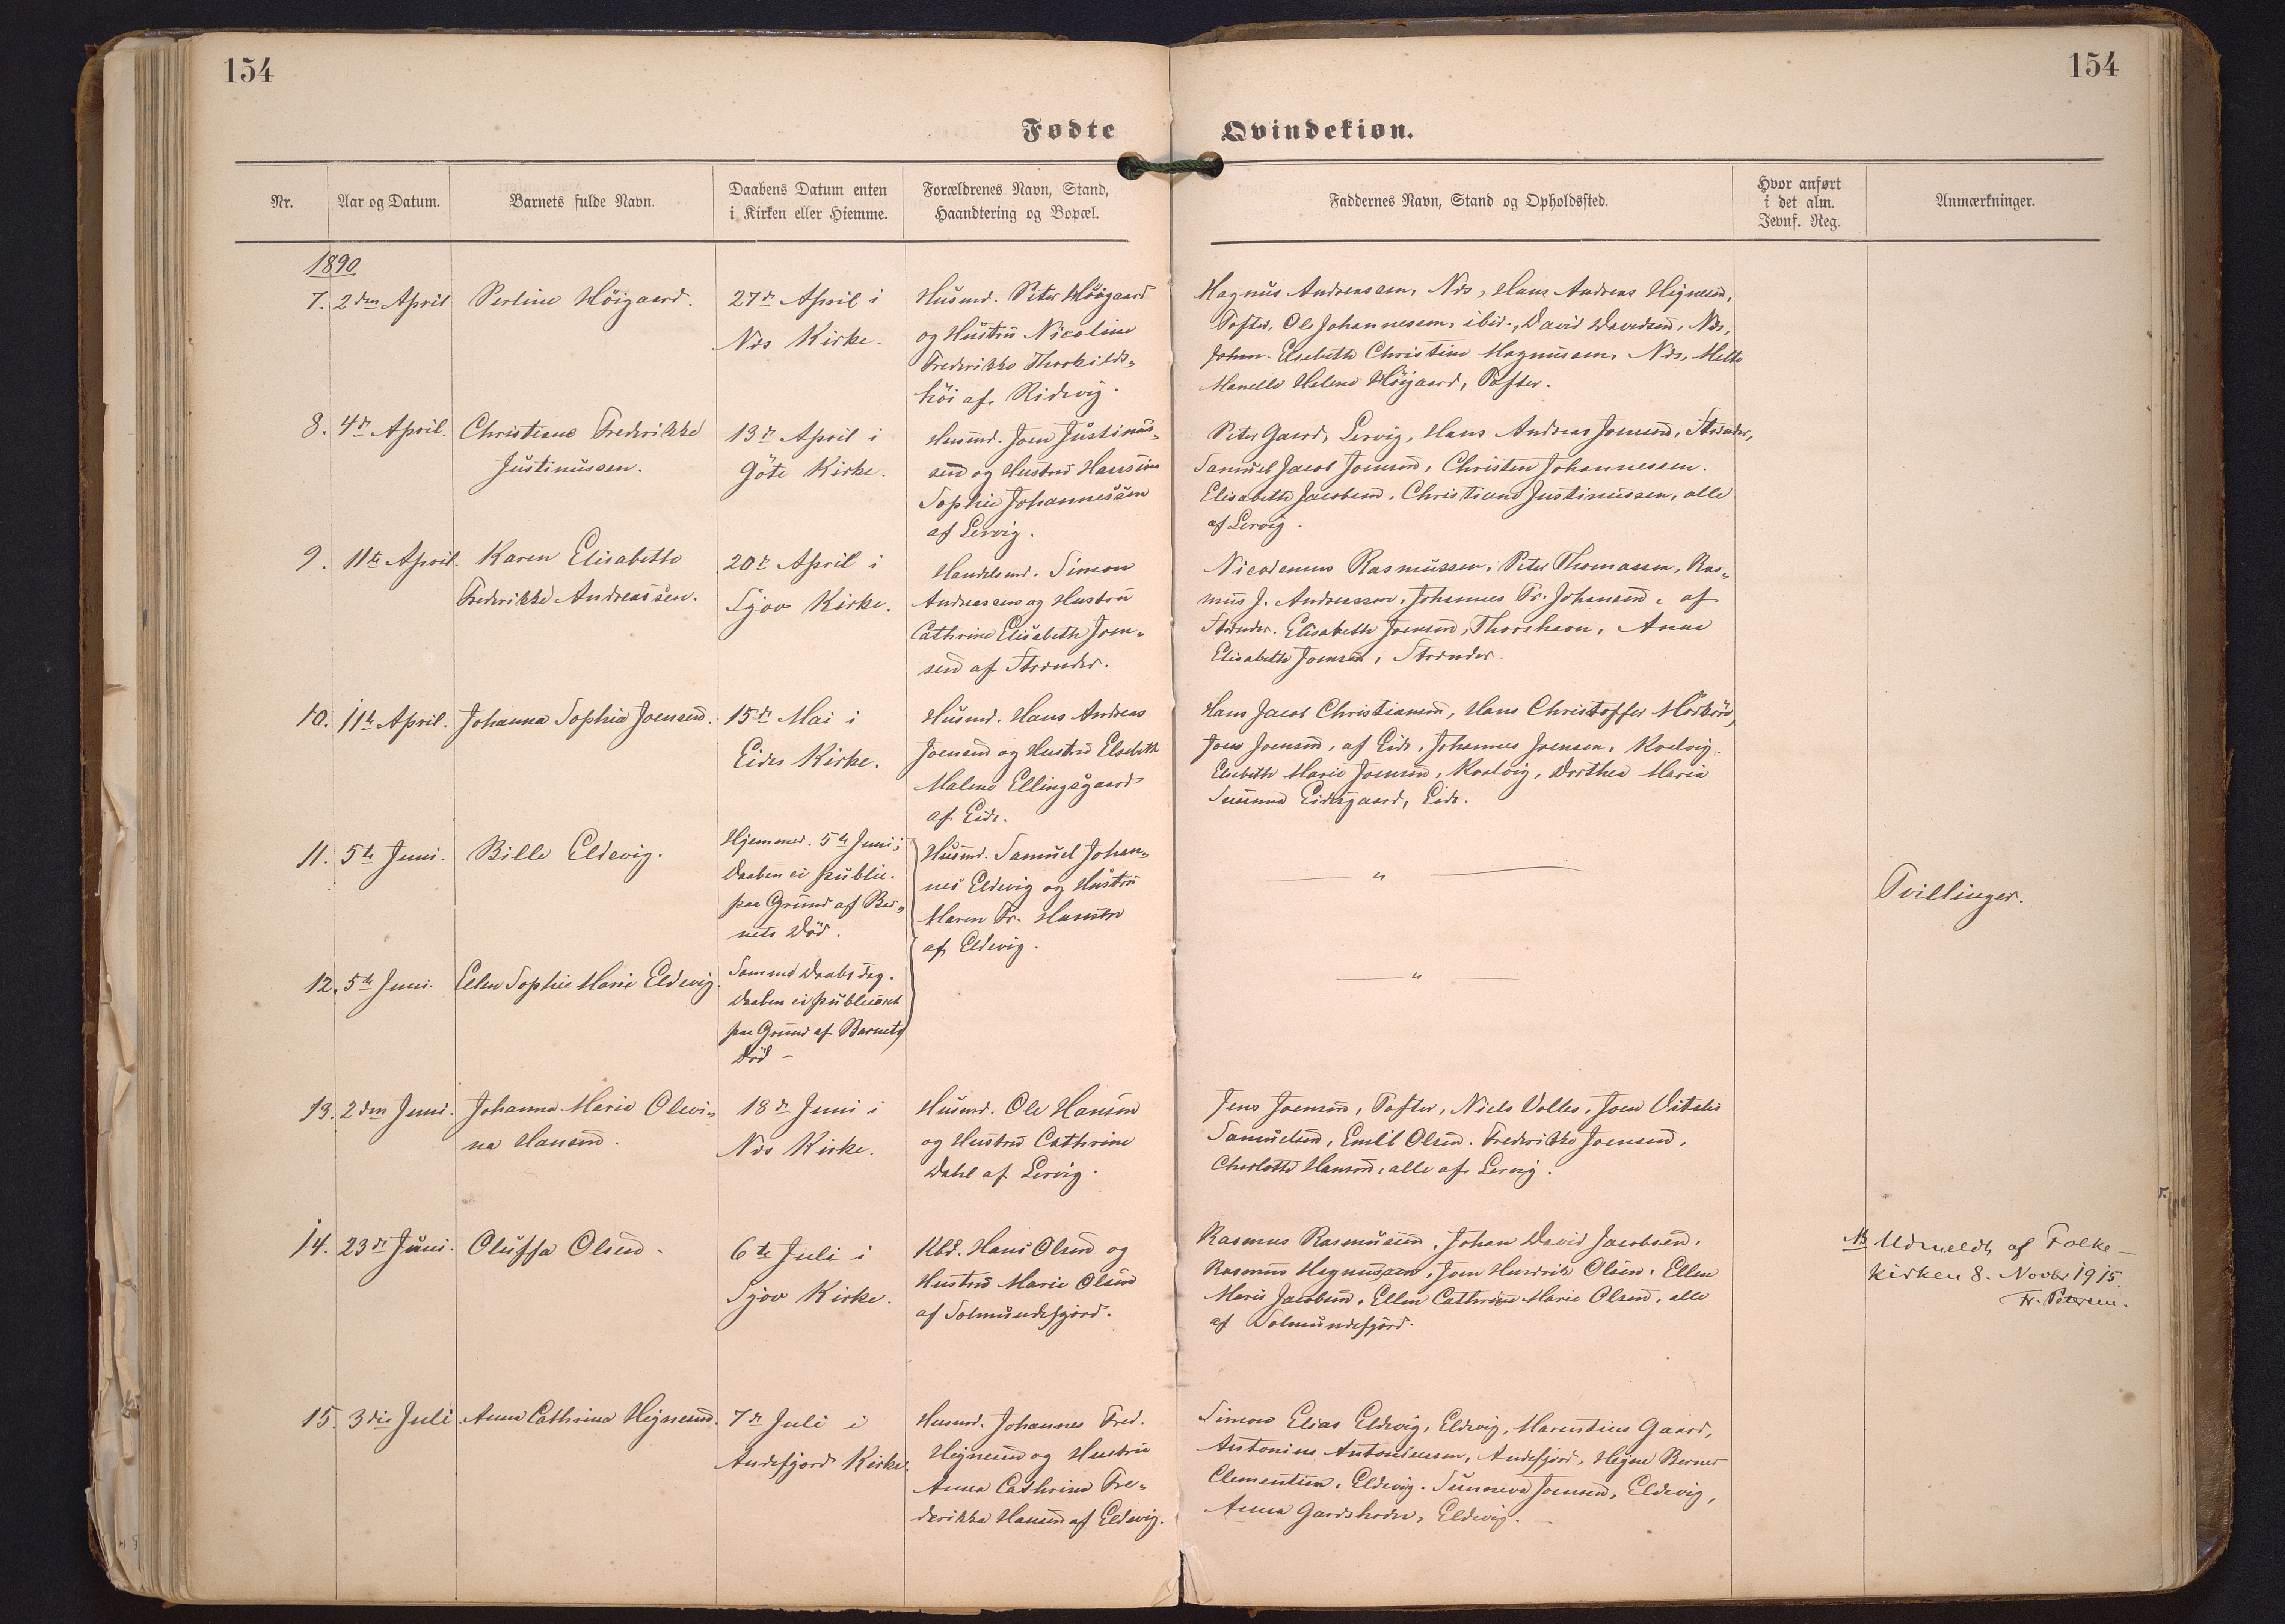 154
154
Fødte
Qvindekiøn.
Nr.
Aar og Datum.
Barnets fulde Navn.
Daabens Datum enten
i Kirken eller Hiemme.
Forældrenes Navn, Stand,
Haandtering og Bopæl.
Faddernes Navn, Stand og Opholdssted.
Hvor anført
i det alm.
Jevnf. Reg.
Anmærkninger.
1890
7. 2den April
Høigaard.
27de April i
Nes Kirke.
Husmd. Peter Høigaard
og Hustru Nicoline
Frederikke Thorkilds-
høi af Ridevig.
Magnus Andreassen, Nes, Hans Andreas
Tofter, Ole Johannessen, ibid., David Davidsen, Nes,
Elsebeth Christine Magnussen, Nes, Mette
Helene Høigaard, Tofter.
8. 4de April.
Christiane Frederikke
Justinussen.
13de April i
Gøte Kirke.
Husmd. Joen Justinus-
sen og Hustru Hansine
Sophie Johannessen
af Lervig.
Peter Gaard, Lervig, Hans Andreas Joensen, Strænder,
Samuel Jacob Joensen, Christen Johannessen.
Elisabeth Jacobsen, Christiane Justinussen, alle
af Lervig.
9. 11te April.
Karen Elisabeth
Frederikke Andreassen.
20de April i
Sjov Kirke.
Handelsmd. Simon
Andreassen og Hustru
Cathrine Elisabeth Joen-
sen af Strænder.
Nicodemus Rasmussen, Peter Thomassen, Ras-
mus J. Andreassen, Johannes Fr. Johansen, af
Strænder. Elisabeth Joensen, Thorshavn, Anne
Elisabeth Joensen, Strænder.
10. 11te April.
Johanna Sophia Joensen.
15de Mai i
Eides Kirke.
Husmd. Hans Andreas
Joensen og Hustru Elsebeth
Malene Ellingsgaard
af Eide.
Hans Jacob Christiansen, Hans Christoffer Mørkøre,
Joen Joensen, af Eide, Johannes Joensen,
Elsebeth Marie Joensen, Dorthea Maria
Susanna Eidesgaard, Eide.
11. 5te Juni.
Bille Eldevig.
Hjemmed. 5te Juni;
Daaben ei public.
paa Grund af Bar-
nets Død.
Husmd. Samuel Johan-
nes Eldevig og Hustru
Maren Fr.
af Eldevig.
— " —
Tvillinger.
12. 5te Juni.
Ellen Sophie Marie Eldevig.
Samme Daabsdag.
Daaben ei publiceret
paa Grund af Barnets
Død —
— " —
13. 2den Juni.
Johanna Maria Olevi-
na Hansen.
18de Juni i
Nes Kirke.
Husmd. Ole Hansen
og Hustru Cathrine
Dahl af Lervig.
Jens Joensen, Tofter, Niels Joen Vitalis
Samuelsen, Emil Olsen. Frederikke Joensen,
Charlotte Hansen, alle af Lervig.
14. 23de Juni.
Oluffa Olsen.
6te Juli i
Sjov Kirke.
Kbd. Hans Olsen og
Hustru Marie Olsen
af Solmundefjord.
Rasmus Rasmussen, Johan David Jacobsen,
Rasmus Magnussen, Joen Hendrik Olsen. Ellen
Marie Jacobsen, Ellen Cathrine Marie Olsen, alle
af Solmundefjord.
NB Udmeldt af Folke-
kirken 8. Novbr 1915.
Fr. Petersen.
15. 3die Juli.
Anna Cathrina Heinesen.
7de Juli i
Andefjord Kirke.
Husmd. Johannes Fred.
Heinesen og Hustru
Anna Cathrina Fre-
derikka Hansen af Eldevig.
Simon Elias Eldevig, Eldevig, Marentius Gaard,
Antonius Antoniussen, Andefjord, Heine Berner
Clementsen, Eldevig. Sunneva Joensen, Eldevig,
Anna Eldevig.